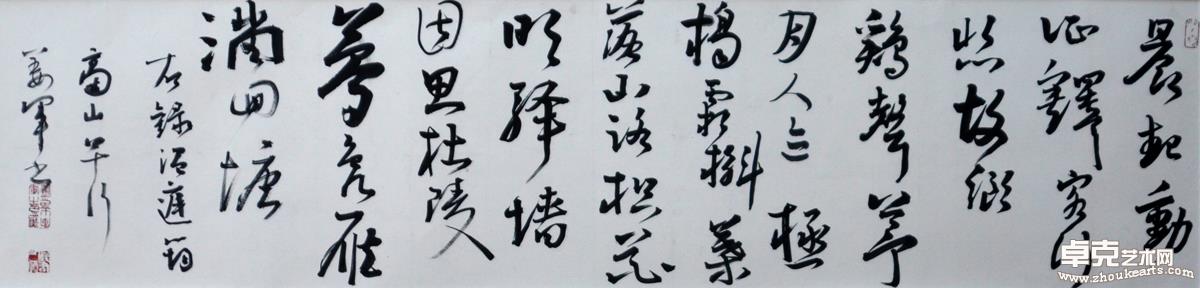 晨起動
征鐸客行
悲故鄉
鷄聲茅
月人
橋霜槲葉
落山路枳花
明驛墻
因思杜陵
夢凫雁
滿回塘
右錄温庭筠
商山早行
姜軍书
卓克艺术网
www.zhoukearts.com